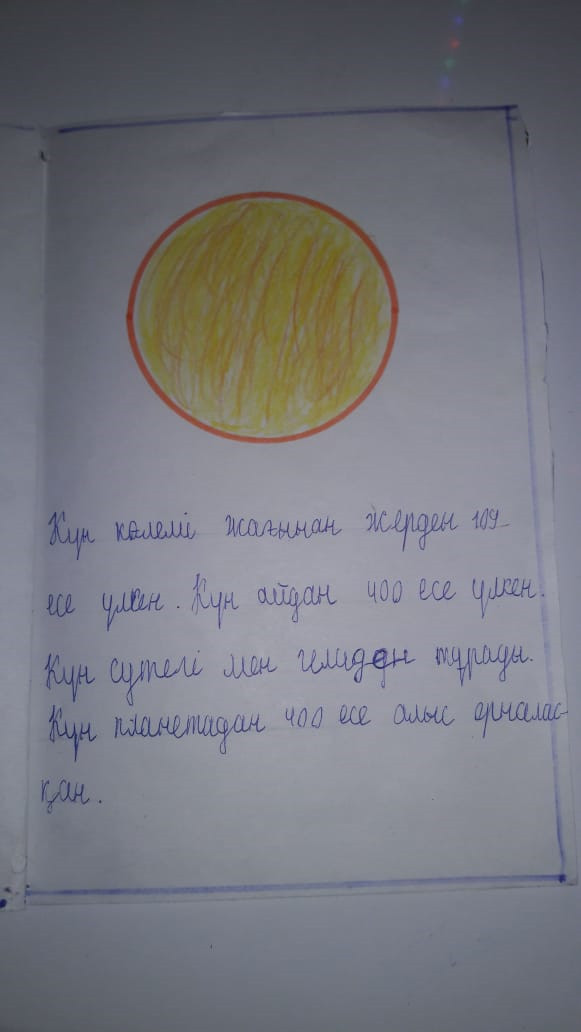 Күн көлемі жағынан жерден 109-
есе үлкен. Күн айдан 400 есе үлкен.
Күн сутегі мен гелиден тұрады.
Күн планетадан 400 есе алыс орналас-
қан.